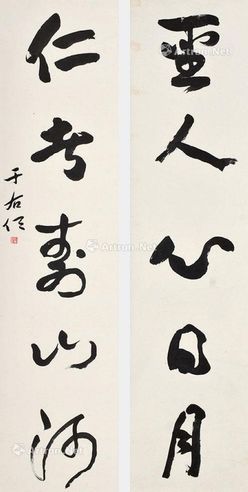 聖人心日月
仁者壽山河
于右任
Artron.Net
Artron.Net